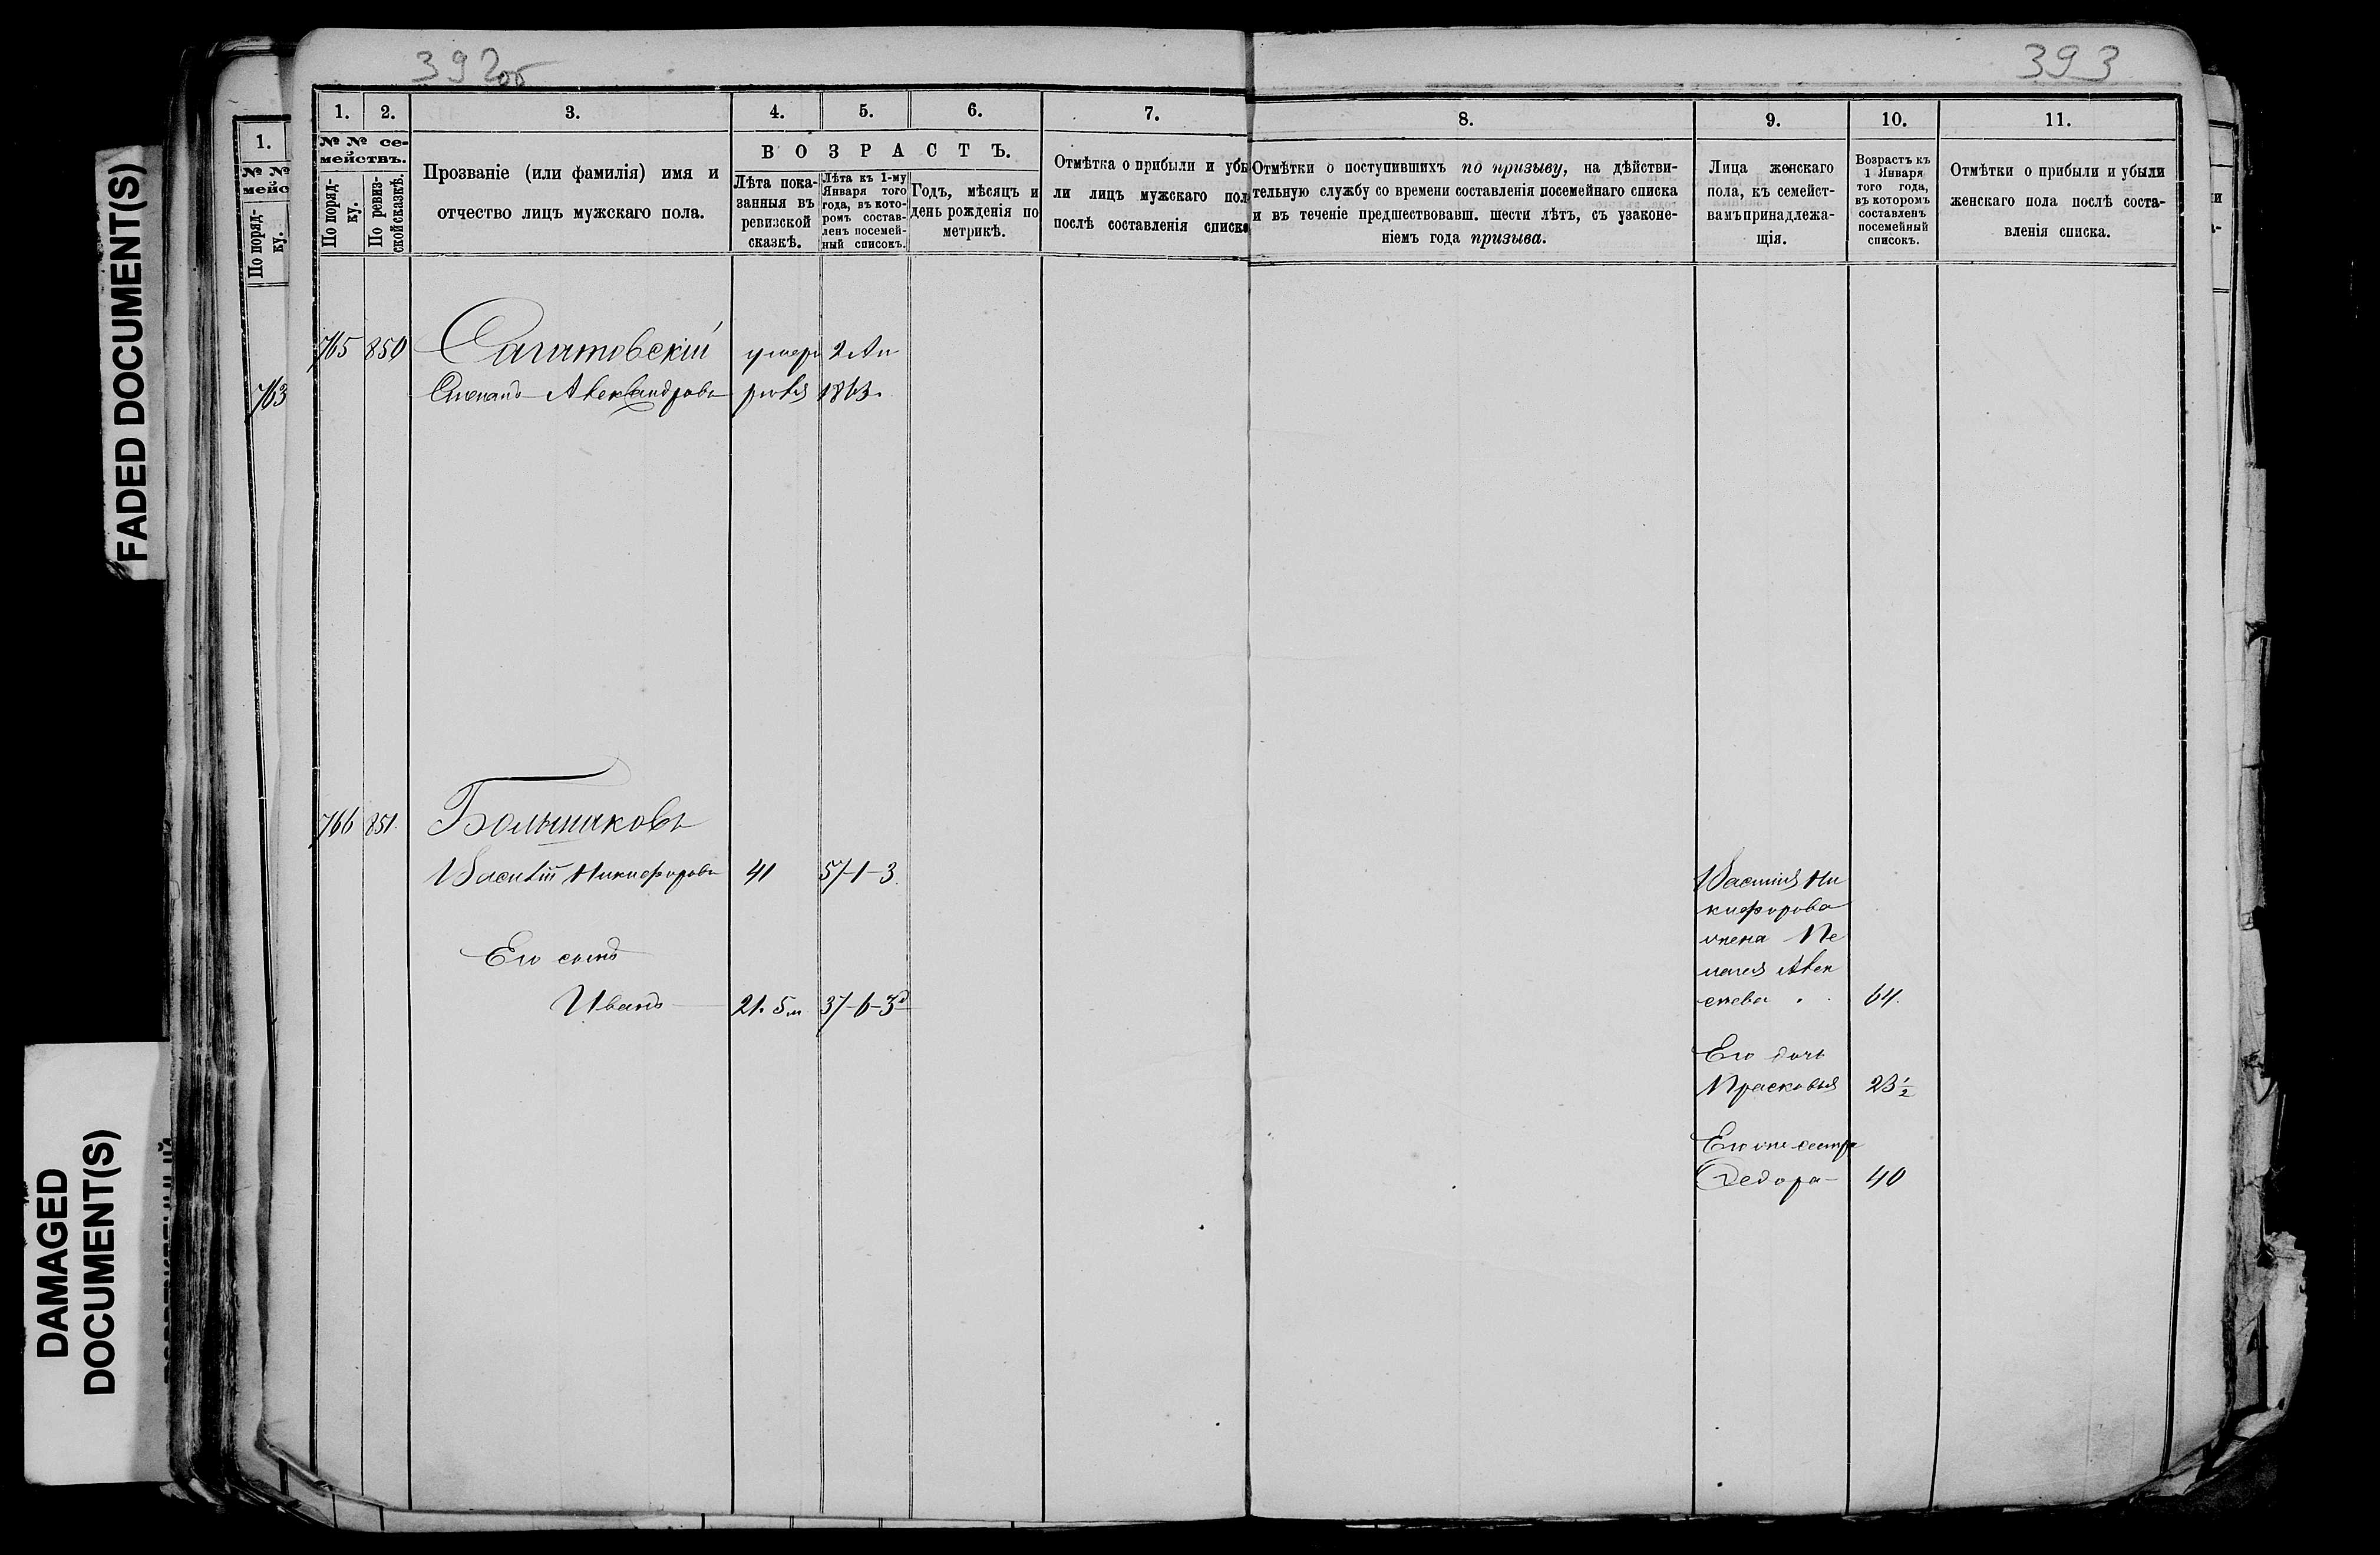 392об
393
1.
2.
3.
4.
5.
6.
7.
8.
9.
10.
11.
№ № се-
мействъ.
По поряд-
ку.
По ревиз-
ской сказкѣ.
Прозваніе (или фамилія) имя и
отчество лицъ мужскаго пола.
ВОЗРАСТЪ.
Лѣта пока-
занныя въ
ревизской
сказкѣ.
Лѣта къ 1-му
Января того
года, въ кото-
ромъ состав-
ленъ посемей-
ный списокъ.
Годъ, мѣсяцъ и
день рожденія по
метрикѣ.
Отмѣтка о прибыли и убы
ли лицъ мужскаго пол
послѣ составленія списка
Отмѣтки о поступившихъ по призыву, на дѣйстви-
тельную службу со времени составленія посемейнаго списка
и въ теченіе предшествовавш. шести лѣтъ, съ узаконе-
ніемъ года призыва.
Лица женскаго
пола, къ семейст-
вамъ принадлежа-
щія.
Возрастъ къ
1 Января
того года,
въ которомъ
составленъ
посемейный
списокъ.
Отмѣтки о прибыли и убыли
женскаго пола послѣ соста-
вленія списка.
1.
№ №
мейс
По поряд-
ку.
763
765 850 Сагатовскій умеръ 2 Ап
Степанъ Александровъ рѣля 1863.
766 851. Большаковъ
Василій Никифоровъ 41 57-1-3
Его сынъ
Иванъ 21. 5м 37-6-3
Василія Ни
кифорова
жена Пе
лагея Алек
сѣева 64.
Его дочь
Прасковья 23 1/2
Его же сестра
Федора 40
FADED DOCUMENT(S)
DAMAGED
DOCUMENT(S)